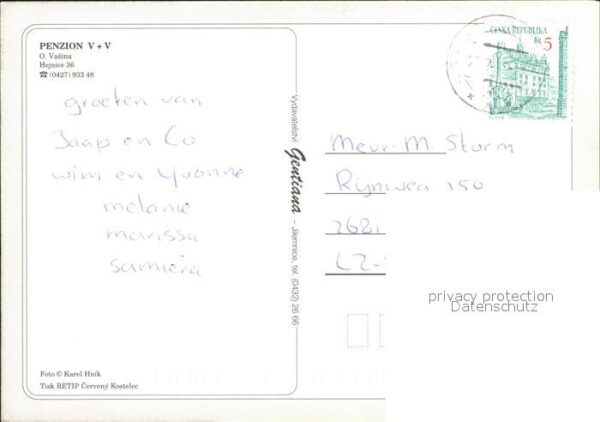 PENZION V + V
O. Vašina
Hejnice 36
☎ (0427) 933 48
groeten van
Jaap en Co
wim en Yvonne
melanie
marissa
samiera
Foto © Karel Hník
Tisk RETIP Červený Kostelec
Vydavatelství Gentiana – Jilemnice, tel. (0432) 26 66
ČESKÁ REPUBLIKA
Kč 5
PLZEŇ
Mevr. M. Storm
Rijnweg 150
2681
privacy protection
Datenschutz